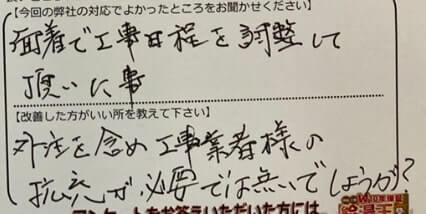 【今回の弊社の対応でよかったところをお聞かせください】
面着で工事日程を調整して
頂いた事
【改善した方がいい所を教えて下さい】
外注を含め工事業者様の
拡充が必要では無いでしょうか?
アンケートをお答えいただいた方には